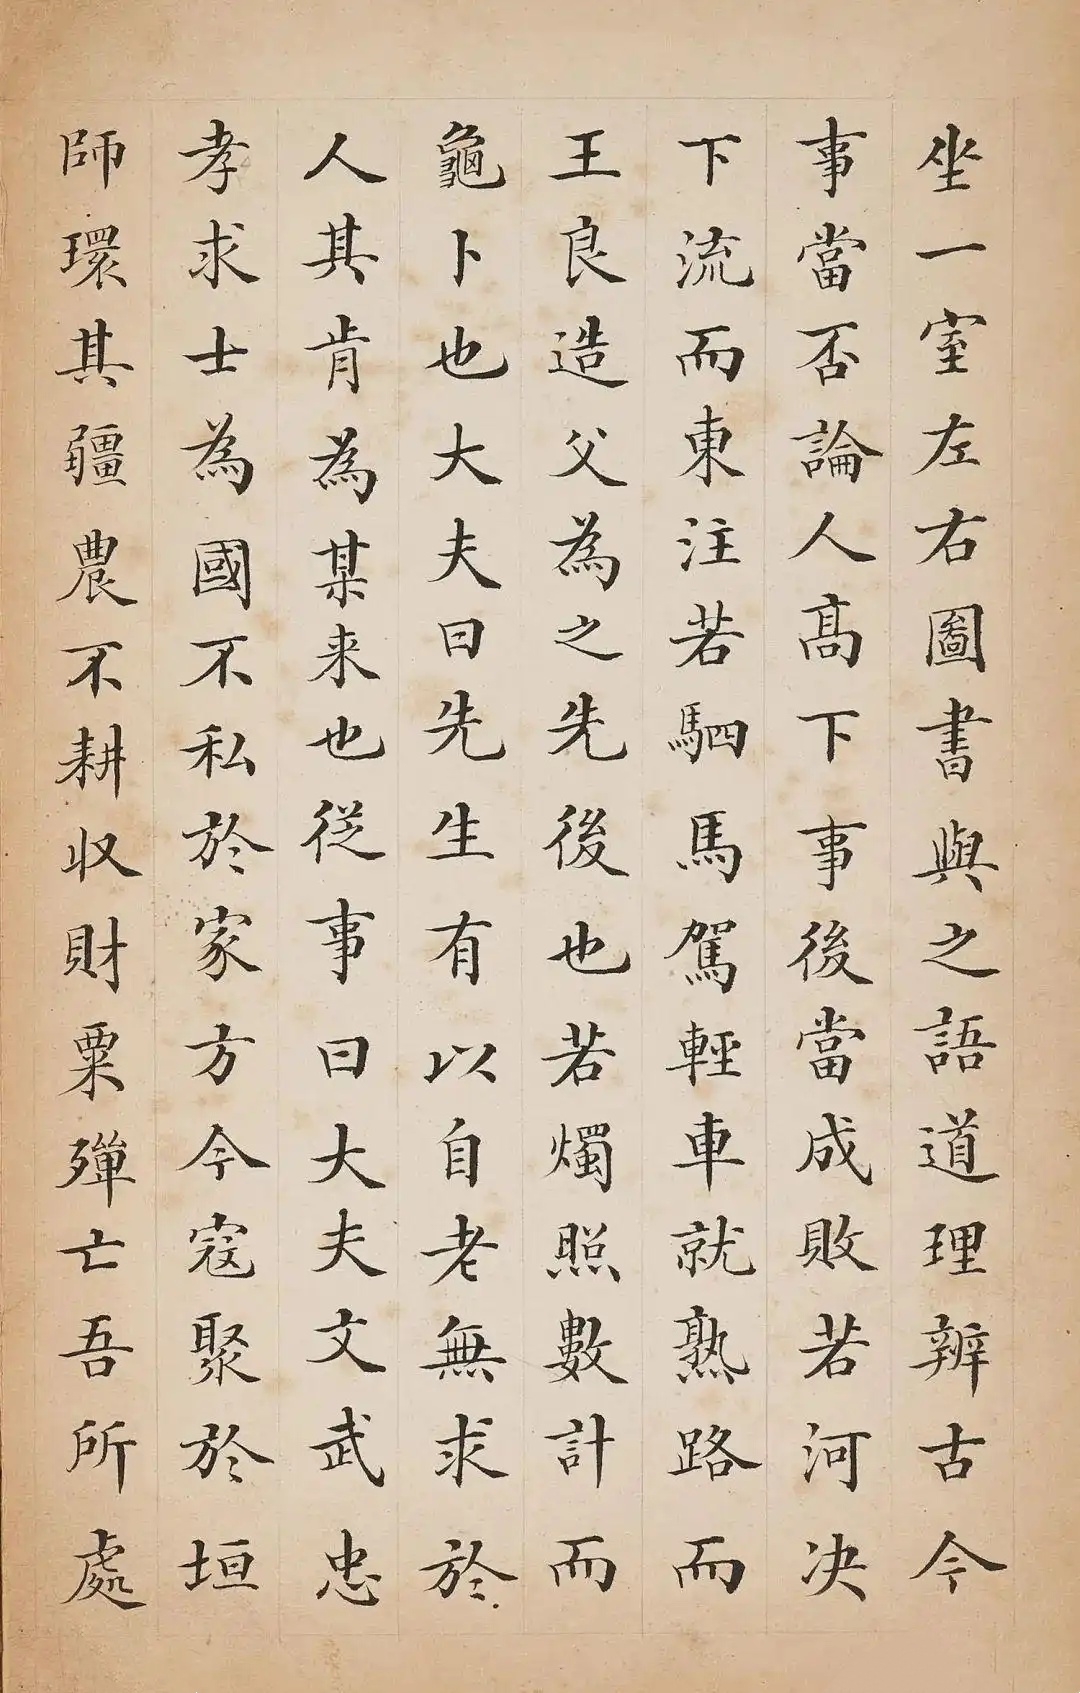 坐一室左右圖書與之語道理辨古今
事當否論人高下事後當成敗若河决
下流而東注若駟馬駕輕車就熟路而
王良造父為之先後也若燭照數計而
龜卜也大夫曰先生有以自老無求於
人其肯為某来也従事曰大夫文武忠
孝求士為國不私於家方今寇聚於垣
師環其疆農不耕収財粟殫亡吾所處